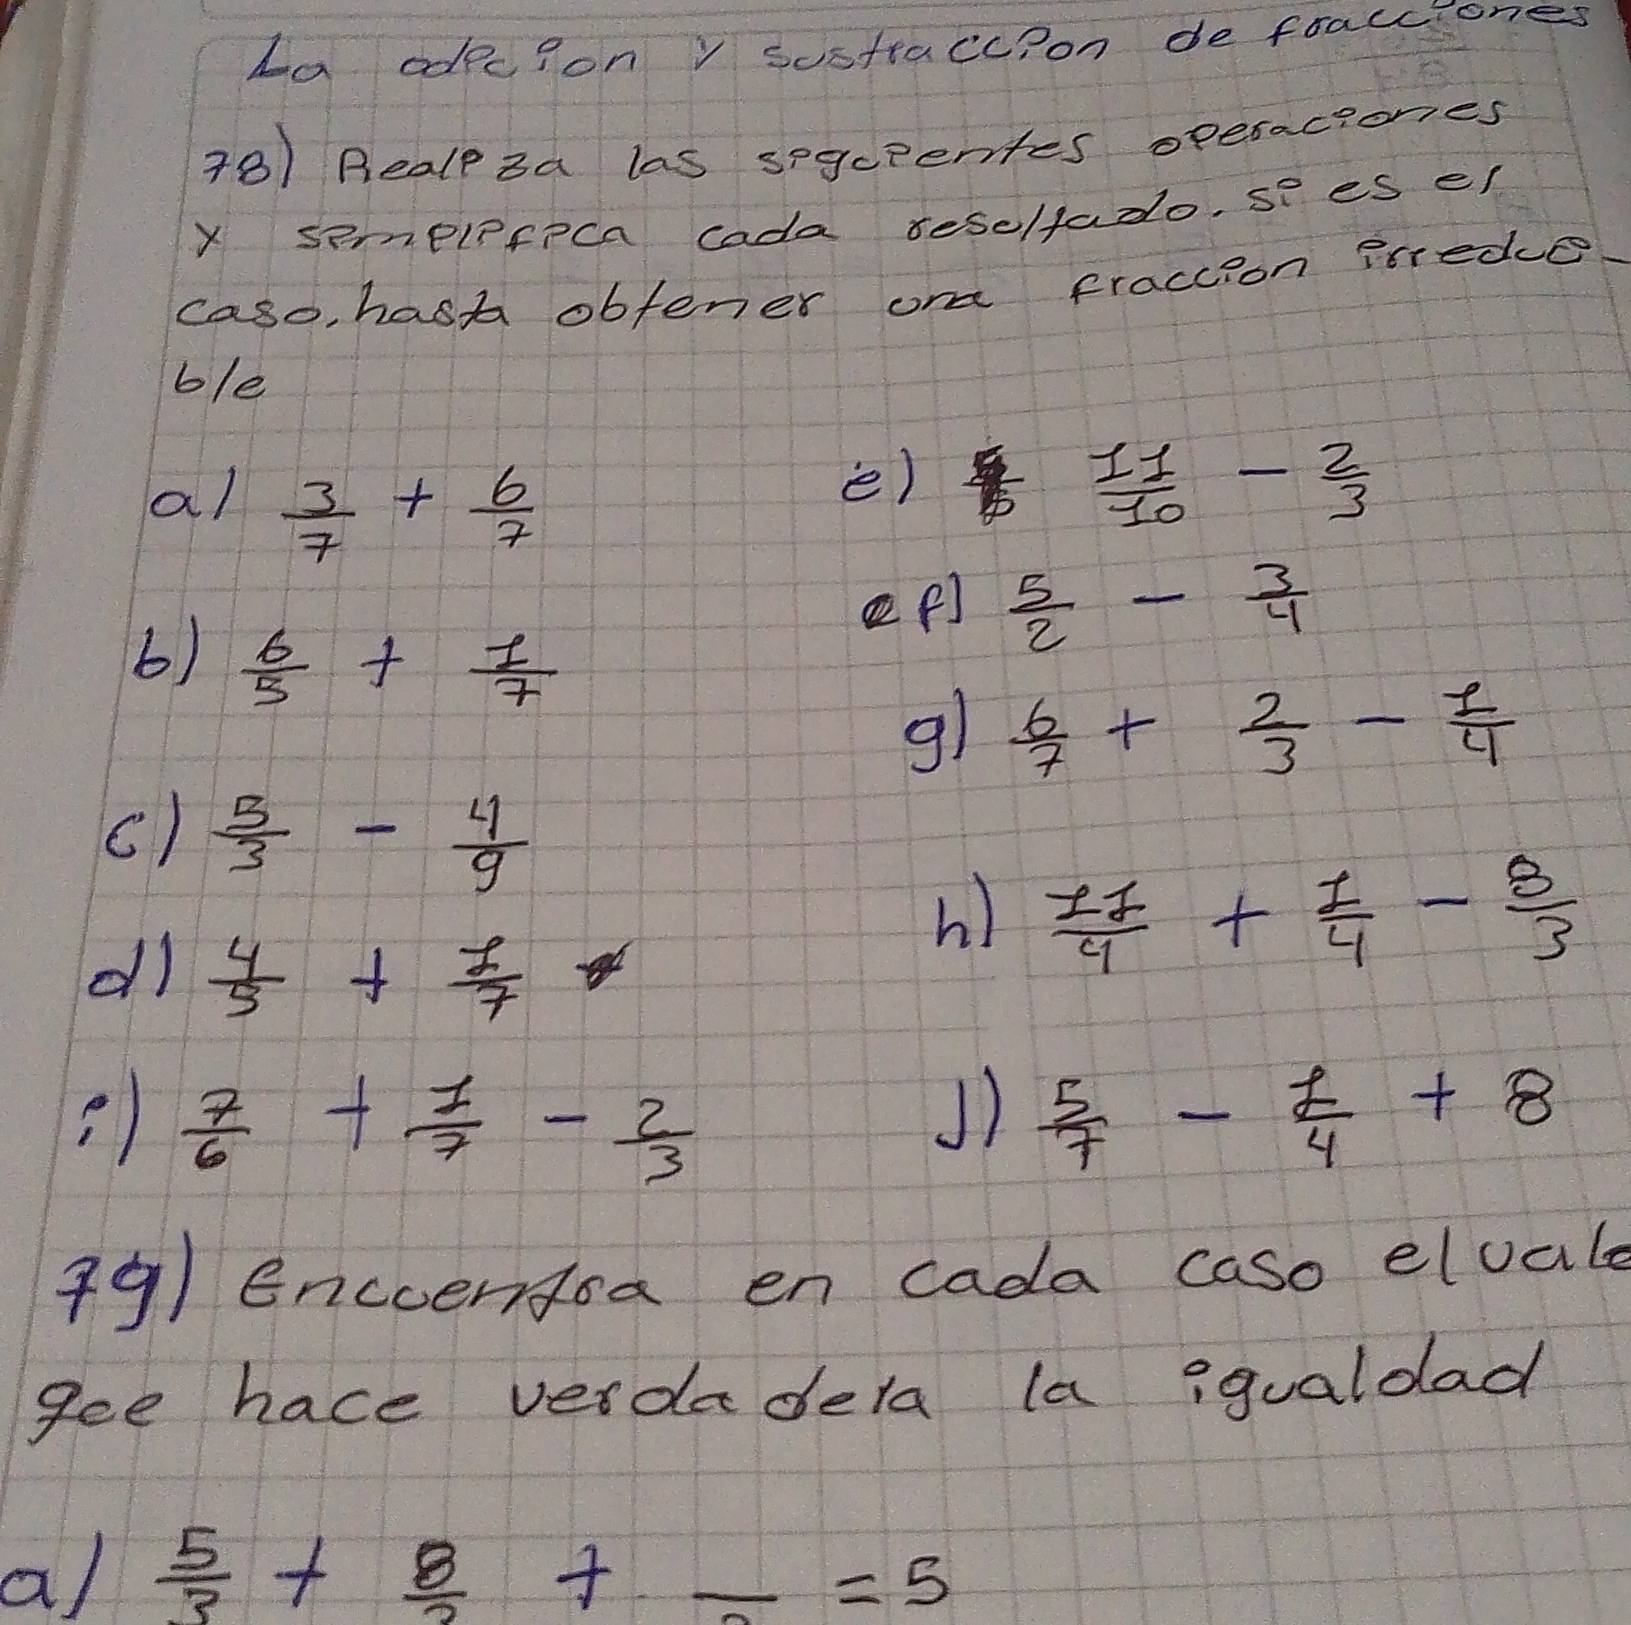 La adicion y sustraccion de fracciones
78) Realiza las siguientes operaciones
y simplifica cada resultado. si es el
caso, hasta obtener una fraccion irreduci-
ble
a) 3/7 + 6/7
e) 11/10 - 2/3
b) 6/5 + 1/7
f) 5/2 - 3/4
g) 6/7 + 2/3 - 1/4
c) 5/3 - 4/9
h) 11/4 + 1/4 - 8/3
d) 4/5 + 1/7
i) 7/6 + 1/7 - 2/3
j) 5/7 - 1/4 + 8
79) Encuentra en cada caso el valo
que hace verdadera la igualdad
a) 5/3 + 8/3 + = 5